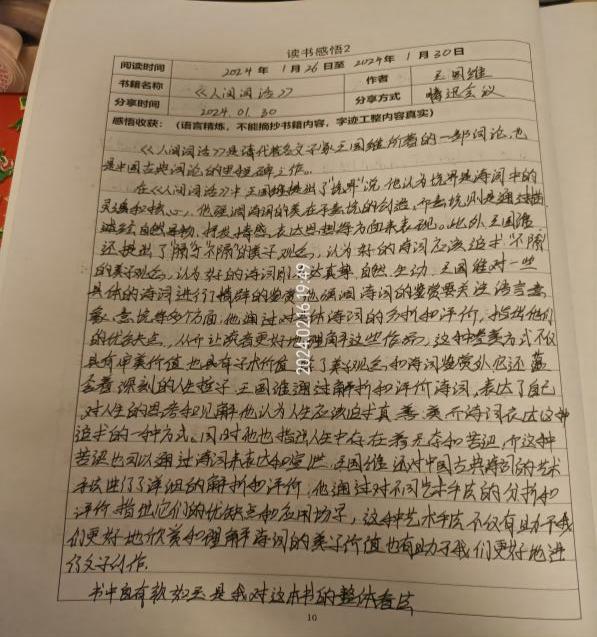 读书感悟2
阅读时间 2024 年 1 月 26 日至 2024 年 1 月 30 日
书籍名称 《人间词话》 作者 王国维
分享时间 2024.01.30 分享方式 腾迅会议
感悟收获:(语言精炼,不能摘抄书籍内容,字迹工整内容真实)
《人间词话》是清代著名文学家王国维所著的一部词论,也
是中国古典词论的里程碑之作。
在《人间词话》中王国维提出了"境界"说,他认为境界是诗词中的
灵魂和核心,他强调诗词的美在于意境的创造,而意境则是通过描
自然景物、抒发情感、表达思想等方面来表现。此外,王国维
还提出了"隔与不隔"的美学观念,认为好的诗词应该追求"不隔"
的美学观念,认为好的诗词则 达真挚、自然、生动,王国维对一些
具体的诗词进行了精辟的鉴赏,他强调诗词的鉴赏要关注语言、意
象、意境等多个方面,他通过对 体诗词的分析和评价,指出他们
的优缺点,从而让读者更好地理解这些作品,这种鉴赏方式不仅
具有审美价值,也具有学术价值, 了美学观念和诗词鉴赏外它还蕴
含着深刻的人生哲学,王国维通过解析和评价诗词,表达了自己
对人生的思考和见解,他认为人生应该追求真、善、美,而诗词表达这种
追求的一种方式。同时他也指出人生中存在着无奈和苦涩,而这种
苦涩也可以通过诗词来表达和宣泄,王国维还对中国古典诗词的艺术
手法进行了详细的解析和评价,他通过对不同艺术手法的分析和
评价,指出它们的优缺点和应用场景,这种艺术手法不仅有助于我
们更好地欣赏和理解诗词的美学价值,也有助于我们更好地进
行文学创作。
书中自有颜如玉是我对这本书的整体看法
10
2024.02.16 19:49